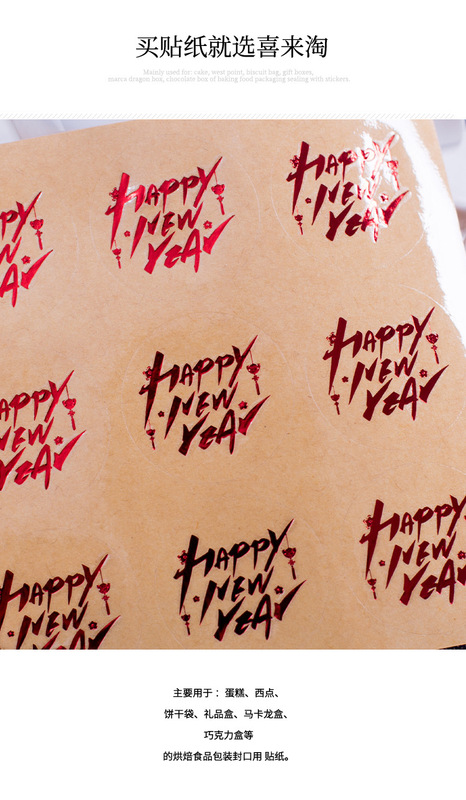 买贴纸就选喜来淘
Mainly used for: cake, west point, biscuit bag, gift boxes,
marca dragon box, chocolate box of baking food packaging sealing with stickers.
HAPPY
NEW
YEAR
HAPPY
NEW
YEAR
HAPPY
NEW
YEAR
HAPPY
NEW
YEAR
HAPPY
NEW
YEAR
HAPPY
NEW
YEAR
HAPPY
NEW
YEAR
HAPPY
NEW
YEAR
HAPPY
NEW
YEAR
主要用于：蛋糕、西点、
饼干袋、礼品盒、马卡龙盒、
巧克力盒等
的烘焙食品包装封口用 贴纸。